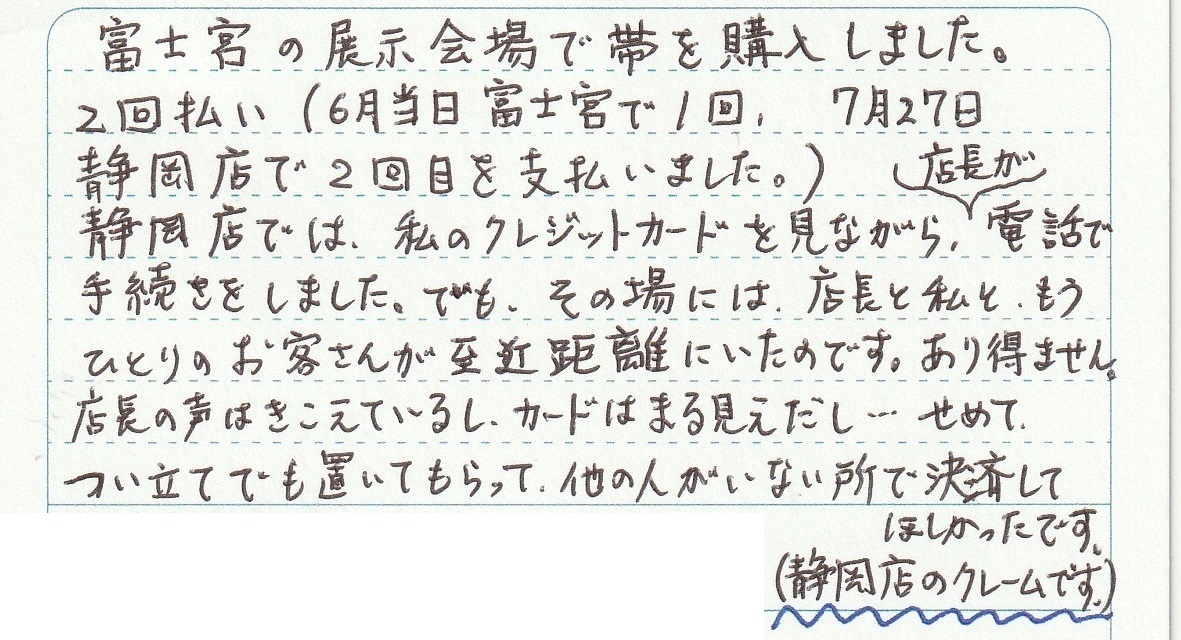 富士宮の展示会場で帯を購入しました。
2回払い(6月当日富士宮で1回、 7月27日
静岡店で2回目を支払いました。)
店長が
静岡店では、私のクレジットカードを見ながら、電話で
手続きをしました。でも、その場には、店長と私と、もう
ひとりのお客さんが至近距離にいたのです。あり得ません。
店長の声はきこえているし、カードはまる見えだし… せめて、
つい立てでも置いてもらって、他の人がいない所で決済して
ほしかったです。
(静岡店のクレームです。)